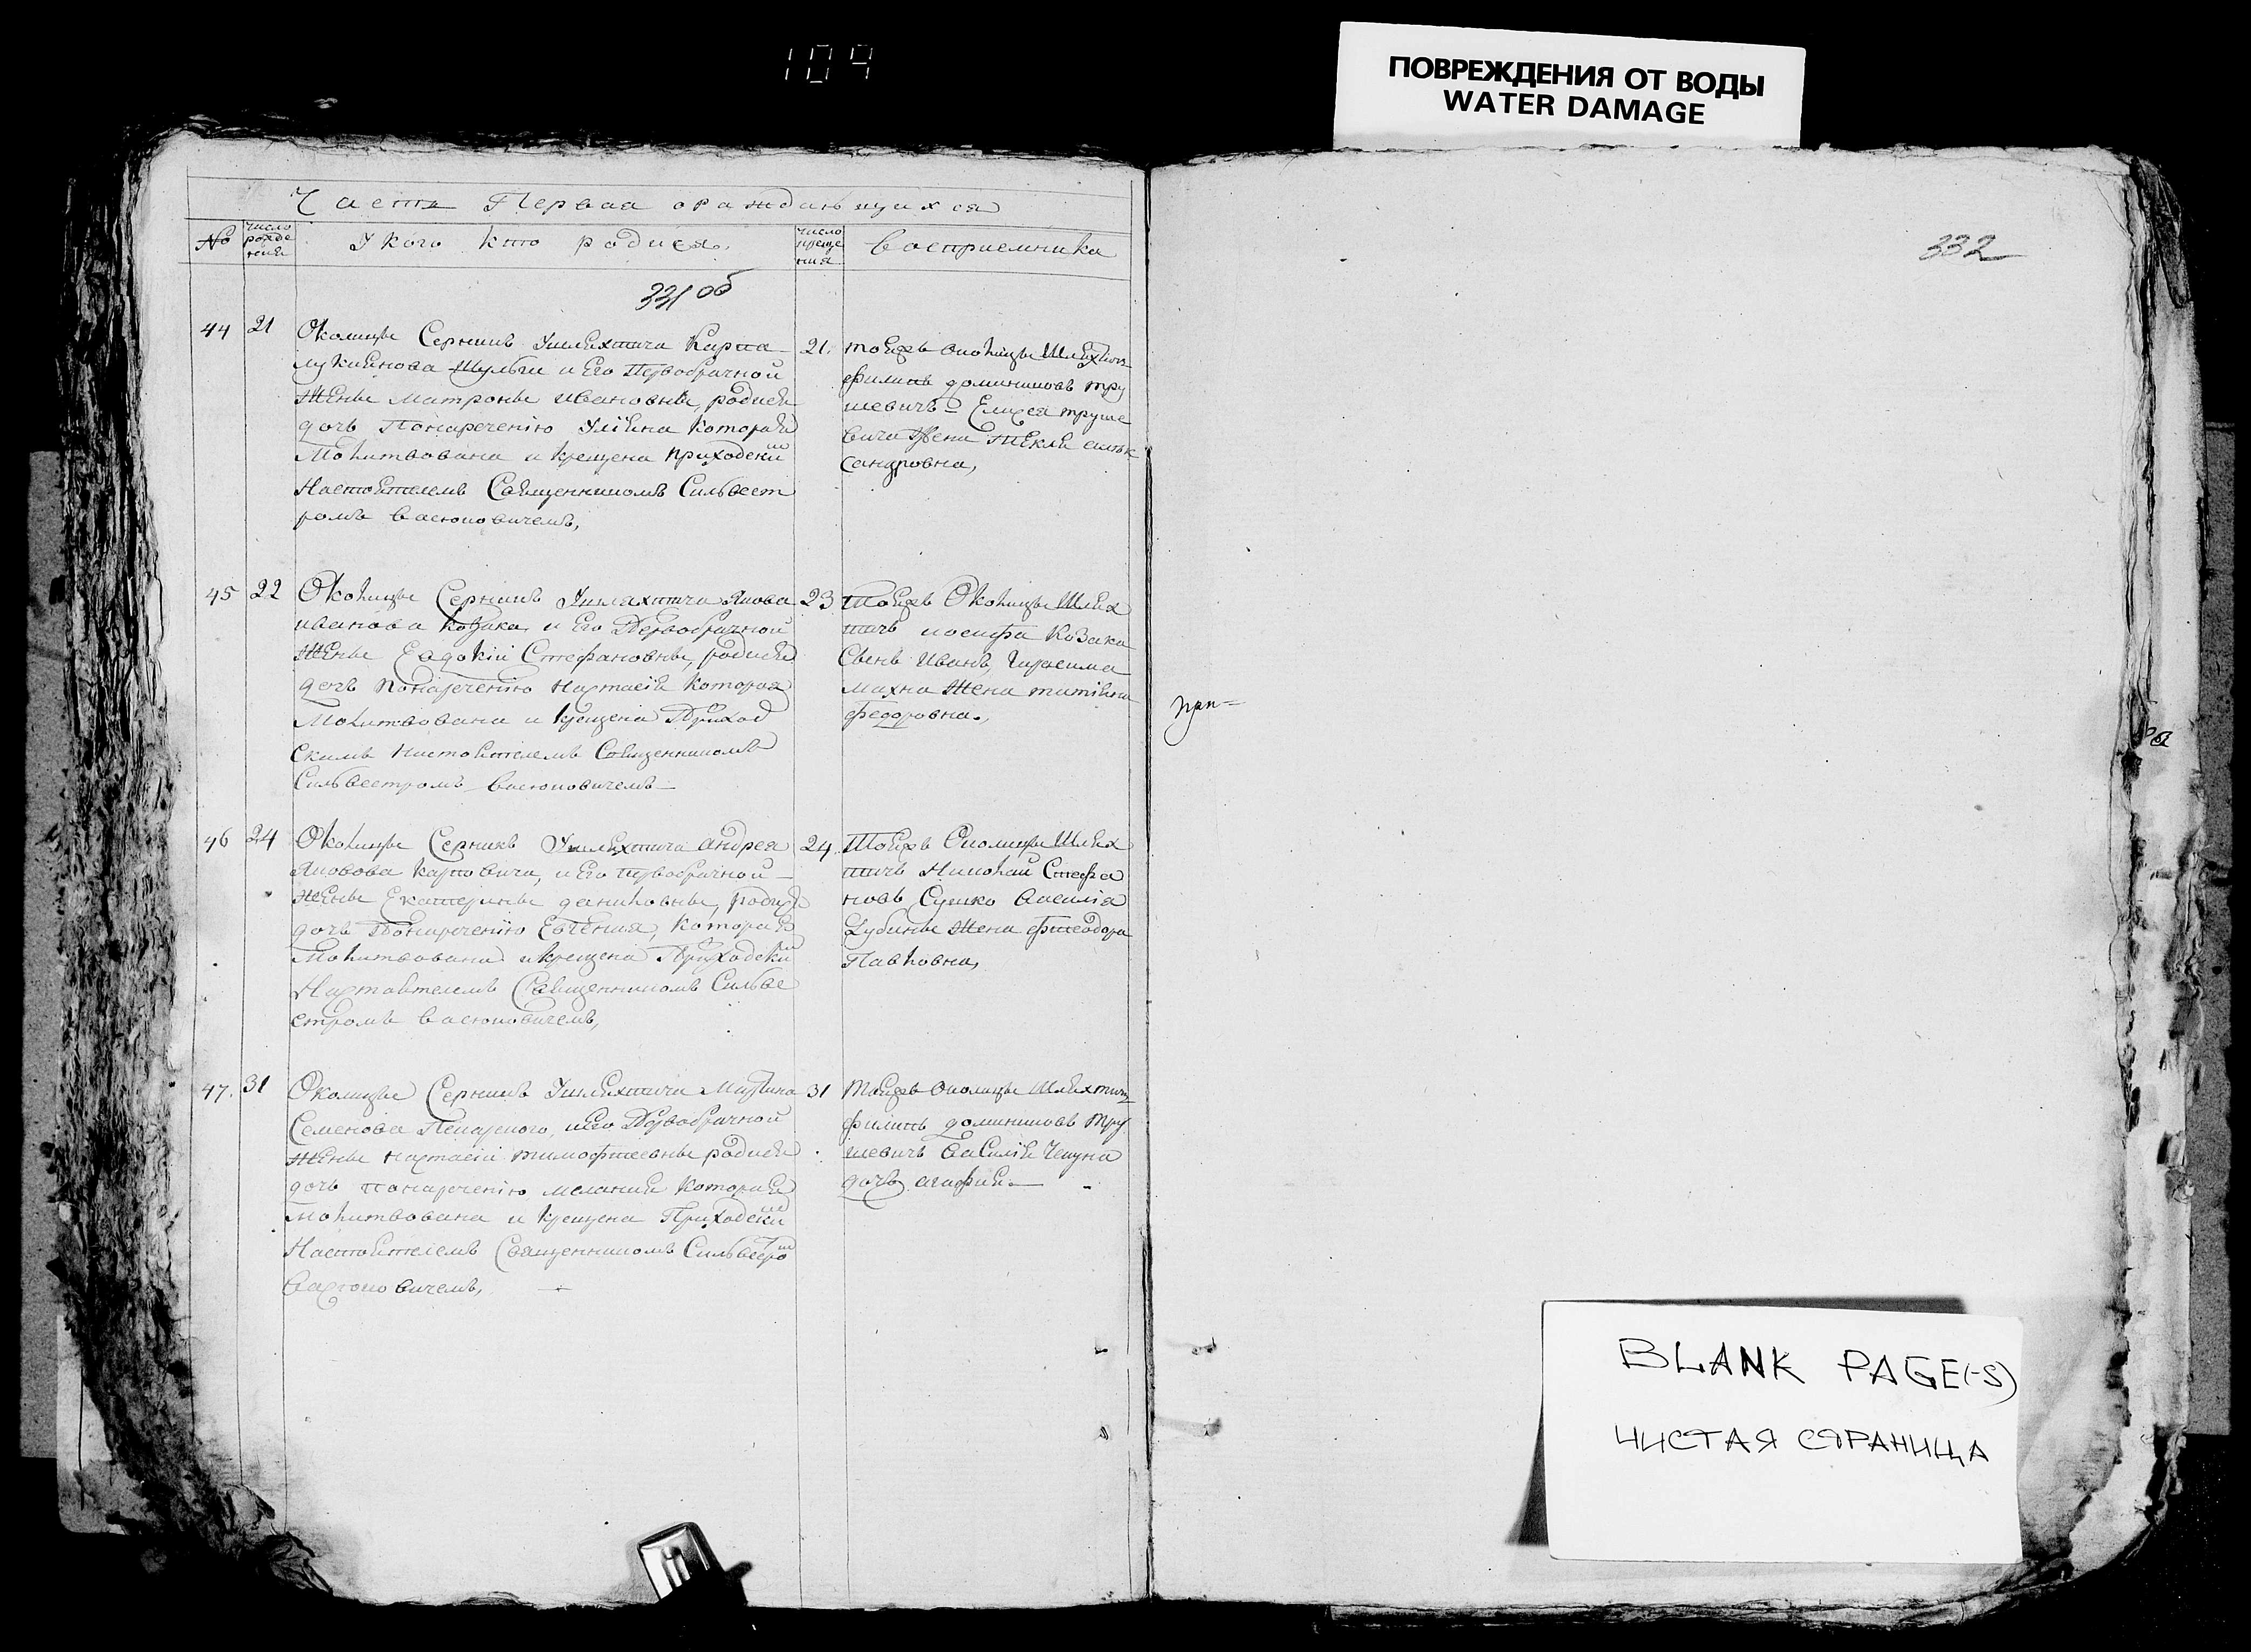 109
ПОВРЕЖДЕНИЯ ОТ ВОДЫ
WATER DAMAGE
Часть Первая ораждающихся
№
число рожде ния
У кого кто родися
число креще ния
восприемника
331 об
332
44 21
Околицы Серникъ Ушляхтича Карпа
Лукиянова Шульги и Его Первобрачной
Женъе Матроне Ивановне, родися
дочь Понаречению Улияна Которая
Молитвована и крещена приходски
Настоятелемъ Священникомъ Сильвест
ромъ Васюковичемъ,
21.
тоейжъ околицы Шляхтичъ
филипъ доминиковъ тру
шевичъ Елисея труше
вича жена Текля алек
сандровна,
45 22
Околицы Серникъ Ушляхтича Якова
иванова Козака и Его Первобрачной
Женъе Евдокіи Стефановне, родися
дочь понаречению Настасія Которая
Молитвована и крещена Приход
скимъ настоятелемъ Священникомъ
Сильвестромъ Васюковичемъ
23
Тоейжъ Околицы Шлях
тичъ иосифа Козака
Сынъ Иванъ, Гарасима
Махна Жена татіяна
федоровна.,
прп=
46 24
Околицы Серникъ Ушляхтича андрея
Яковова Карповича, и Его первобрачной
Женъе Екатерине даниловне, родися
дочь Понаречению Евгения, Которая
Молитвована и крещена Приходски
Настоятелемъ Священникомъ Сильве
стромъ Васюковичемъ,
24.
Тоейжъ Околицы Шлях
тичъ Николай Стефа
новъ Сушко Василія
Дубины Жена фтеодора
Павловна,
47. 31
Околицы Серникъ Ушляхтича Мартина
Семенова и Его Первобрачной
Женъе Настасіи тимофтеевне родися
дочь понаречению мелания Которая
Молитвована и крещена Приходски
Настоятелемъ Священникомъ Сильвестро
Васюковичемъ,
31
Тоейжъ околицы Шляхтичъ
филипъ доминиковъ Тру
шевичъ Василія
дочь агафия.
BLANK PAGE(-S)
ЧИСТАЯ СТРАНИЦА